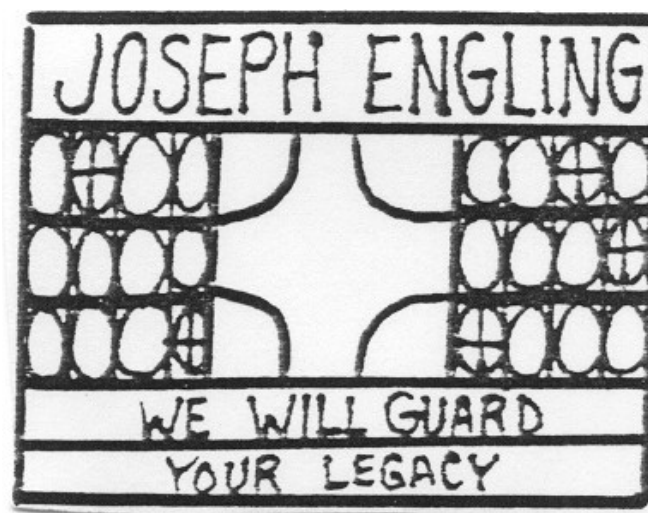 JOSEPH ENGLING
WE WILL GUARD
YOUR LEGACY